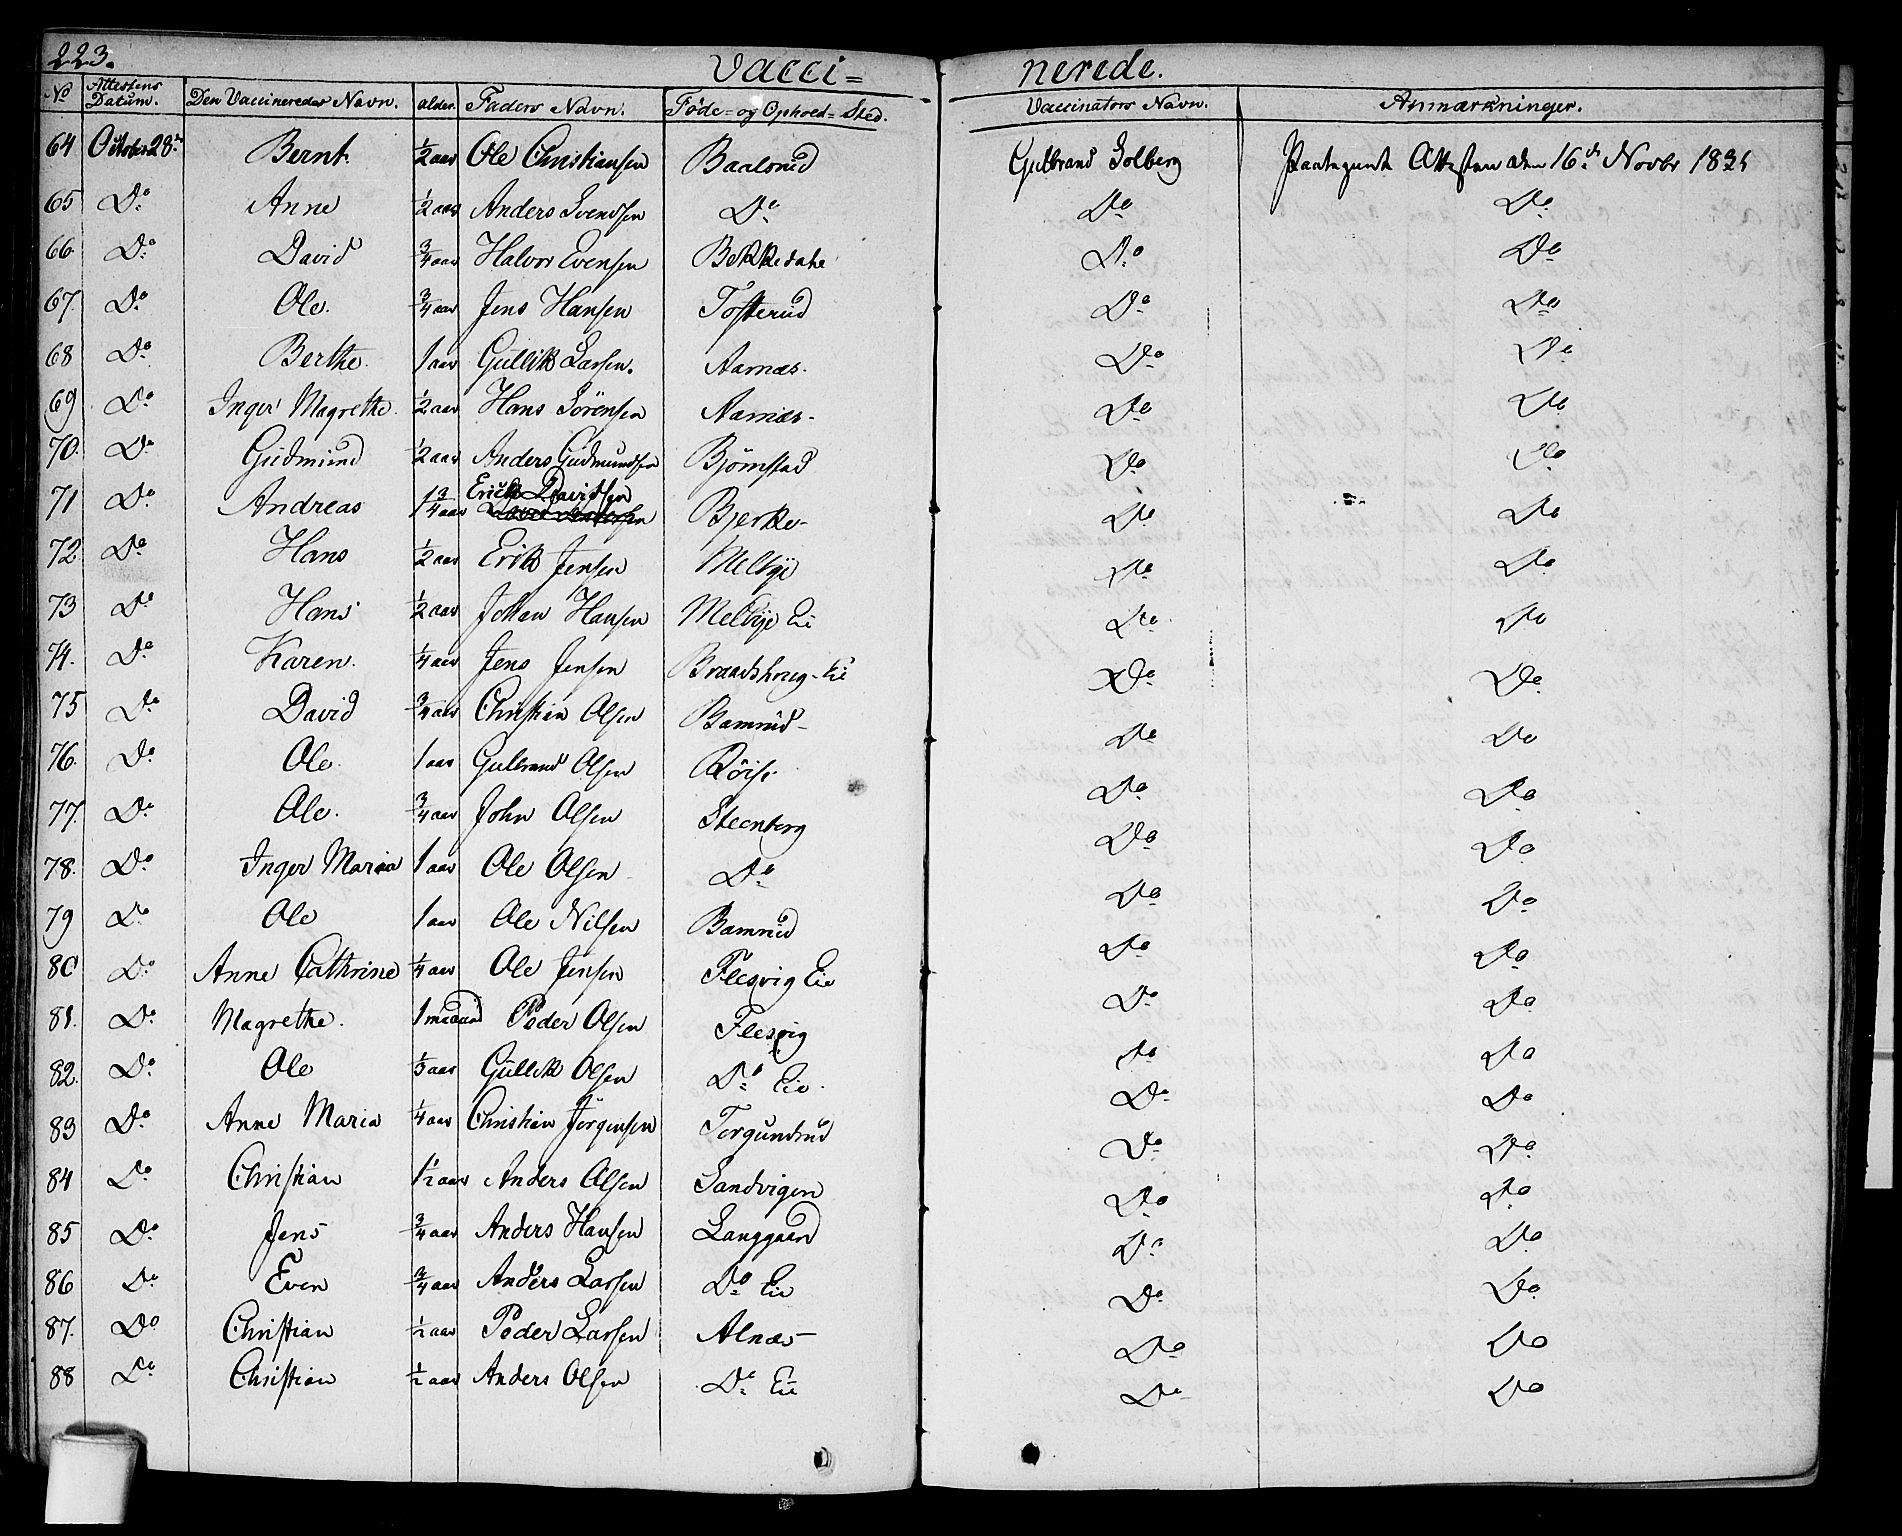 223. Vacci= nerede.
No Attestens Datum. Den Vaccineredes Navn. alder. Faders Navn. Føde- og Ophold-Sted. Vaccinators Navn. Anmærkninger.
64 October 28de Bernt ½ aar Ole Christiansen Baalsrud Gulbrand Solberg Attesten den 16de Novbr
65 Do Anne ½ aar Anders Svendsen Do Do Do
66 Do David ¾ aar Halvor Evensen Bekkedahl Do Do
67. Do Ole. ¾ aar Jens Hansen Tofterud Do Do
68 Do Berthe. 1 aar Gullik Larsen. Aarnæs. Do Do
69 Do Inger Magrethe. ½ aar Hans Sörensen Aarnæs- Do Do
70. Do Gudmund ½ aar Anders Gudmundsen Bjørnstad Do Do
71 Do Andreas 1¾ aar Erick Davidsen Bjerke- Do Do
72. Do Hans ½ aar Erik Jensen Melbye Do Do
73 Do Hans ½ aar Johan Hansen Melbye Eie Do Do
74. Do Karen. ¼ aar Jens Jensen Brandshoug-Eie Do Do
75 Do David ¾ aar Christian Olsen Bamrud- Do Do
76. Do Ole. 1 aar Gulbrand Olsen Do Do
77. Do Ole. ¾ aar John Olsen Steenberg Do Do
78. Do Inger Maria 1 aar Ole Olsen Do Do Do
79 Do Ole 1 aar Ole Nilsen Bamrud Do Do
80 Do Anne Cathrine ¼ aar Ole Jensen Flesvig Eie Do Do
81. Do Magrethe. 1 maaned Peder Olsen Flesvig Do Do
82. Do Ole aar Gullik Olsen Do Eie. Do Do
83 Do Anne Maria ¼ aar Christian Jörgensen Torgundrud Do Do
84 Do Christian 1½ aar Anders Olsen Sandvigen Do Do
85 Do Jens ¾ aar Anders Hansen Langgaard Do Do
86 Do Even ¾ aar Anders Larsen Do Eie Do Do
87. Do Christian ½ aar Peder Larsen Alnæs- Do Do
88 Do Christian ½ aar Anders Olsen Do Eie Do Do